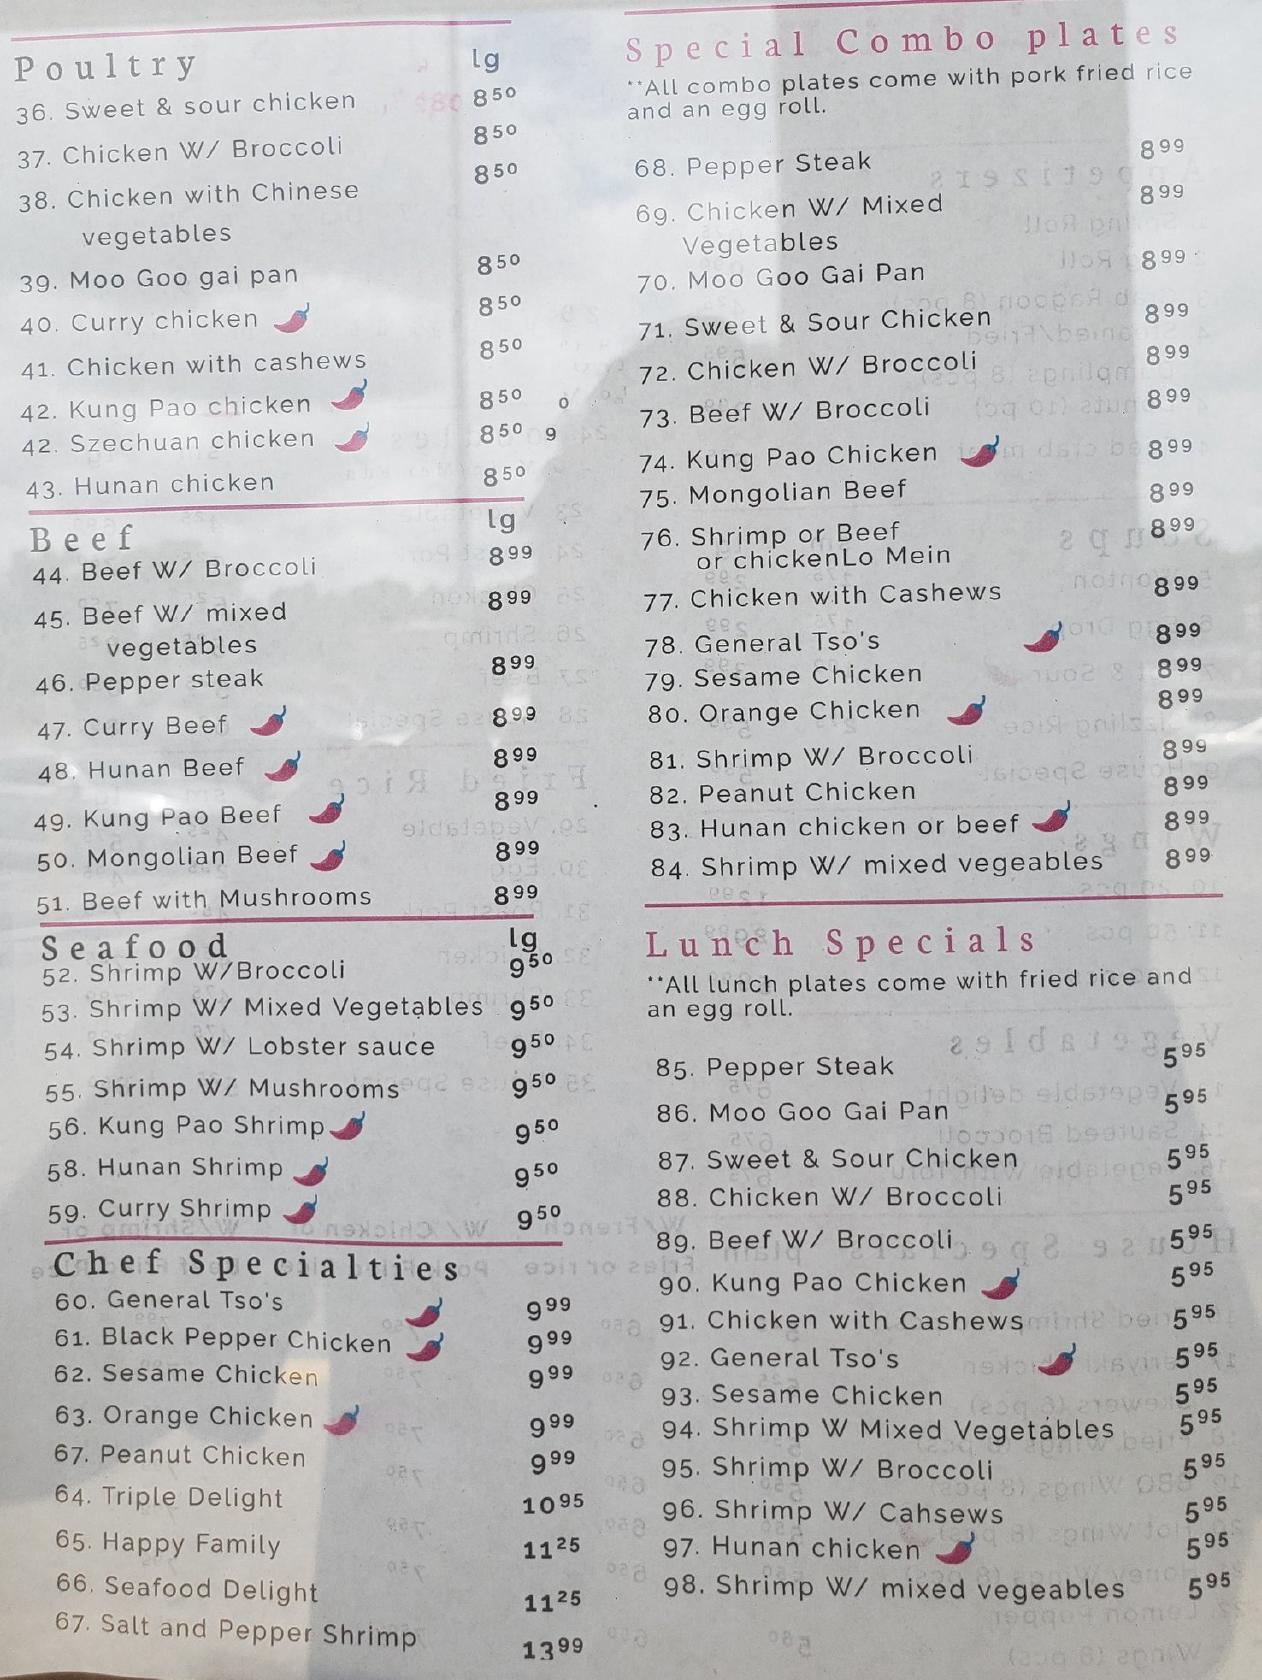 Poultry lg
36. Sweet & sour chicken 8 50
37. Chicken W/ Broccoli 8 50
38. Chicken with Chinese 8 50
vegetables
39. Moo Goo gai pan 8 50
40. Curry chicken 8 50
41. Chicken with cashews 8 50
42. Kung Pao chicken 8 50 0
42. Szechuan chicken 8 50 9
43. Hunan chicken 8 50
Beef lg
44. Beef W/ Broccoli 8 99
45. Beef W/ mixed 8 99
vegetables
46. Pepper steak 8 99
47. Curry Beef 8 99
48. Hunan Beef 8 99
49. Kung Pao Beef 8 99
50. Mongolian Beef 8 99
51. Beef with Mushrooms 8 99
Seafood lg
52. Shrimp W/Broccoli 9 50
53. Shrimp W/ Mixed Vegetables 9 50
54. Shrimp W/ Lobster sauce 9 50
55. Shrimp W/ Mushrooms 9 50
56. Kung Pao Shrimp 9 50
58. Hunan Shrimp 9 50
59. Curry Shrimp 9 50
Chef Specialties
60. General Tso's 9 99
61. Black Pepper Chicken 9 99
62. Sesame Chicken 9 99
63. Orange Chicken 9 99
67. Peanut Chicken 9 99
64. Triple Delight 10 95
65. Happy Family 11 25
66. Seafood Delight 11 25
67. Salt and Pepper Shrimp 13 99
Special Combo plates
**All combo plates come with pork fried rice
and an egg roll.
68. Pepper Steak 8 99
69. Chicken W/ Mixed 8 99
Vegetables
70. Moo Goo Gai Pan 8 99
71. Sweet & Sour Chicken 8 99
72. Chicken W/ Broccoli 8 99
73. Beef W/ Broccoli 8 99
74. Kung Pao Chicken 8 99
75. Mongolian Beef 8 99
76. Shrimp or Beef 8 99
or chickenLo Mein
77. Chicken with Cashews 8 99
78. General Tso's 8 99
79. Sesame Chicken 8 99
80. Orange Chicken 8 99
81. Shrimp W/ Broccoli 8 99
82. Peanut Chicken 8 99
83. Hunan chicken or beef 8 99
84. Shrimp W/ mixed vegeables 8 99
Lunch Specials
**All lunch plates come with fried rice and
an egg roll.
85. Pepper Steak 5 95
86. Moo Goo Gai Pan 5 95
87. Sweet & Sour Chicken 5 95
88. Chicken W/ Broccoli 5 95
89. Beef W/ Broccoli 5 95
90. Kung Pao Chicken 5 95
91. Chicken with Cashews 5 95
92. General Tso's 5 95
93. Sesame Chicken 5 95
94. Shrimp W Mixed Vegetables 5 95
95. Shrimp W/ Broccoli 5 95
96. Shrimp W/ Cahsews 5 95
97. Hunan chicken 5 95
98. Shrimp W/ mixed vegeables 5 95